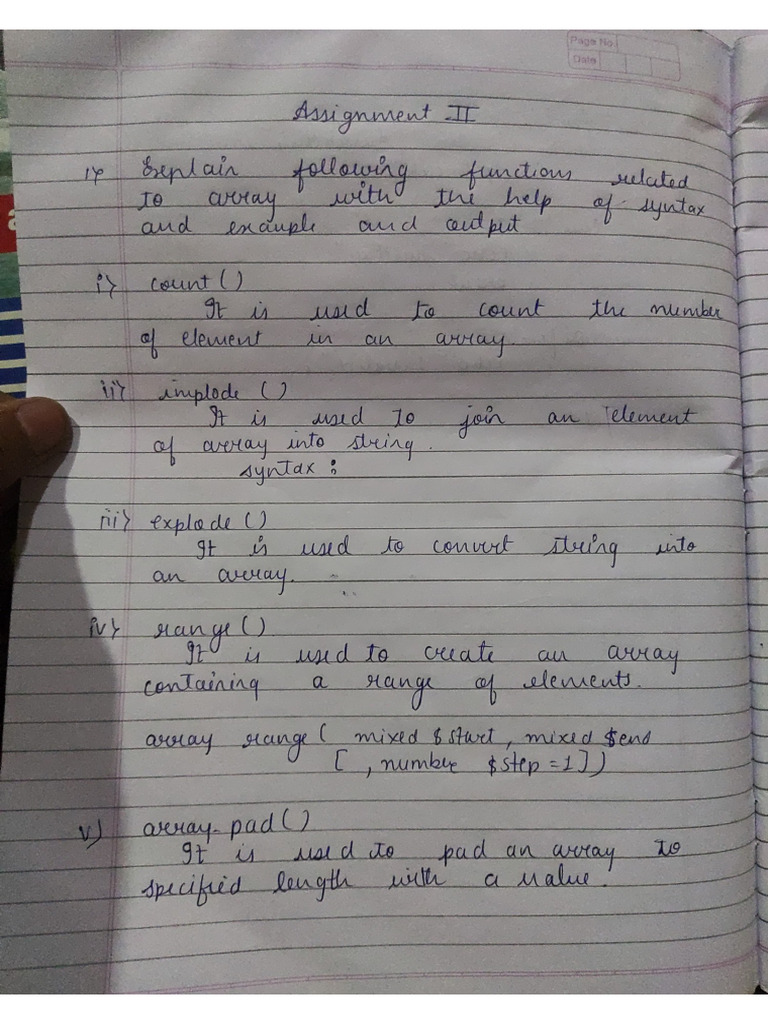 Page No
Date
Assignment II
1) Explain following functions related
to array with the help of syntax
and example and output
i) count()
It is used to count the number
of element in an array.
ii) implode ()
It is used to join an element
of array into string.
syntax :
iii) explode ()
It is used to convert string into
an array.
iv) range()
It is used to create an array
containing a range of elements.
array range( mixed $start, mixed $end
[ , number $step = 1])
v) array-pad()
It is used to pad an array to
specified length with a value.